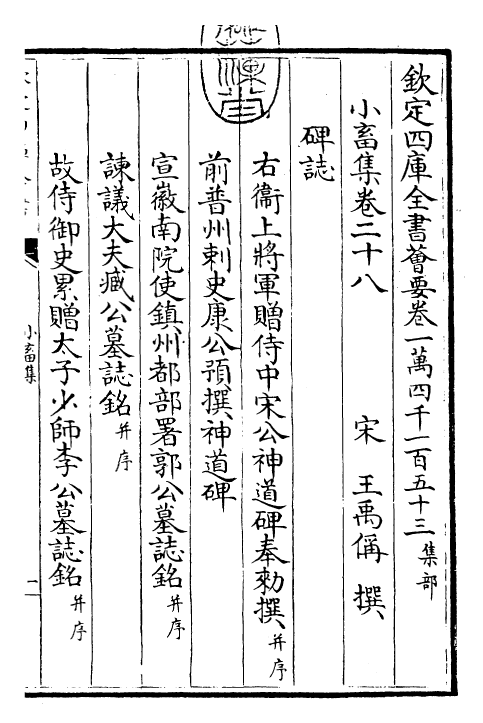 欽定四庫全書薈要卷一萬四千一百五十三 集部
小畜集卷二十八 宋 王禹偁 撰
碑誌
右衞上將軍贈侍中宋公神道碑奉勑撰 并序
前普州刺史康公預撰神道碑
宣徽南院使鎮州都部署郭公墓誌銘 并序
諫議大夫臧公墓誌銘 并序
故侍御史累贈太子少師李公墓誌銘 并序
小畜集
一